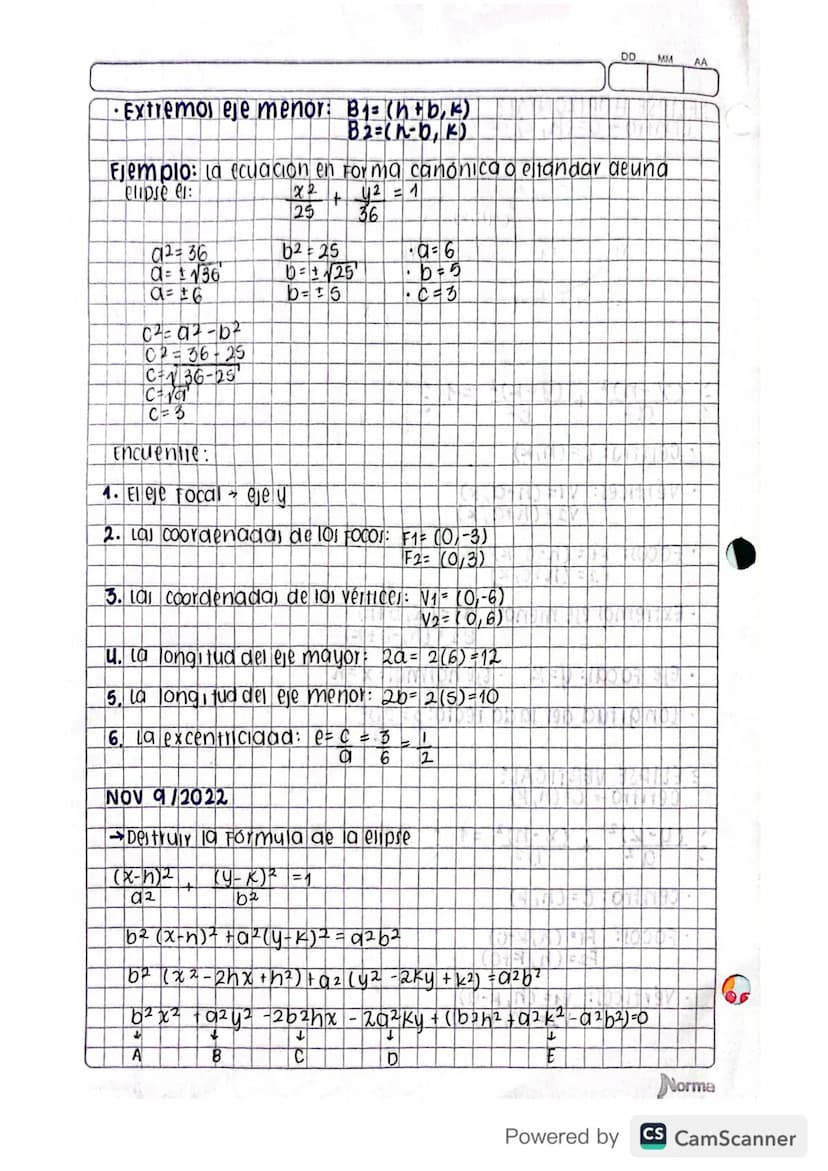 DD MM AA
· Extremos eje menor: B1= (h+b, k)
B2=(h-b, k)
Ejemplo: La ecuación en forma canónica o estándar de una
elipse es: x2/25 + y2/36 = 1
a2=36 b2=25 ·a=6
a= ±√36 b=±√25 · b=5
a= ±6 b= ±5 · c=3
c2= a2-b2
c2= 36-25
c=√36-25
c=√9
c=3
Encuentre:
1. El eje Focal → eje y
2. Las coordenadas de los Focos: F1= (0,-3)
F2= (0,3)
3. Las coordenadas de los vértices: V1= (0,-6)
V2= (0,6)
4. La longitud del eje mayor: 2a= 2(6)=12
5. La longitud del eje menor: 2b= 2(5)=10
6. La excentricidad: e= c/a = 3/6 = 1/2
NOV 9/2022
→Destruir la Fórmula de la elipse
(x-h)2/a2 + (y-k)2/b2 =1
b2 (x-h)2 +a2(y-k)2 = a2b2
b2 (x2-2hx+h2)+a2(y2-2ky+k2)=a2b2
b2x2 +a2y2 -2b2hx -2a2ky+(b2h2+a2k2-a2b2)=0
↓ ↓ ↓ ↓ ↓
A B C D E
Norma
Powered by CS CamScanner